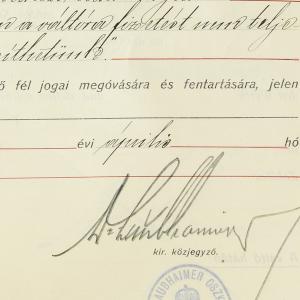 a váltóra fizetést nem telje-
síthetünk".
ő fél jogai megóvására és fentartására, jelen
évi április hó
kir. közjegyző.
AUBHAIMER OSZK